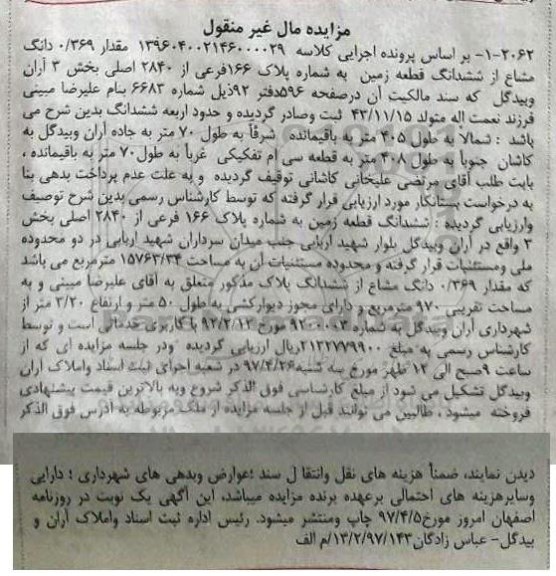 مزایده مال غیر منقول
۱-۲۰۶۲- بر اساس پرونده اجرایی کلاسه ۱۳۹۶۰۴۰۰۲۱۴۶۰۰۰۰۲۹ مقدار ۰/۳۶۹ دانگ
مشاع از ششدانگ قطعه زمین به شماره پلاک ۱۶۶فرعی از ۲۸۴۰ اصلی بخش ۳ آران
وبیدگل که سند مالکیت آن درصفحه ۵۹۶دفتر ۹۲ذیل شماره ۶۶۸۳ بنام علیرضا مبینی
فرزند نعمت اله متولد ۴۳/۱۱/۱۵ ثبت وصادر گردیده و حدود اربعه ششدانگ بدین شرح می
باشد : شمالا به طول ۴۰۵ متر به باقیمانده شرقاً به طول ۷۰ متر به جاده آران وبیدگل به
کاشان جنوباً به طول ۴۰۸ متر به قطعه سی ام تفکیکی غرباً به طول۷۰ متر به باقیمانده ،
بابت طلب آقای مرتضی علیخانی کاشانی توقیف گردیده و به علت عدم پرداخت بدهی بنا
به درخواست بستانکار مورد ارزیابی قرار گرفته که توسط کارشناس رسمی بدین شرح توصیف
وارزیابی گردیده : ششدانگ قطعه زمین به شماره پلاک ۱۶۶ فرعی از ۲۸۴۰ اصلی بخش
۳ واقع در آران وبیدگل بلوار شهید اربابی جنب میدان سرداران شهید اربابی در دو محدوده
ملی ومستثنیات قرار گرفته و محدوده مستثنیات آن به مساحت ۱۵۷۶۳/۳۴ مترمربع می باشد
که مقدار ۰/۳۶۹ دانگ مشاع از ششدانگ پلاک مذکور متعلق به آقای علیرضا مبینی و به
مساحت تقریبی ۹۷۰ مترمربع و دارای مجوز دیوارکشی به طول ۵۰ متر و ارتفاع ۲/۲۰ متر از
شهرداری آران وبیدگل به شماره ۹۲۰۰۰۳ مورخ ۹۲/۲/۱۳ با کاربری خدماتی است و توسط
کارشناس رسمی به مبلغ ۲۱۳۲۷۷۹۹۰۰ریال ارزیابی گردیده ودر جلسه مزایده ای که از
ساعت ۹صبح الی ۱۲ ظهر مورخ سه شنبه۹۷/۴/۲۶ در شعبه اجرای ثبت اسناد واملاک آران
وبیدگل تشکیل می شود از مبلغ کارشناسی فوق الذکر شروع وبه بالاترین قیمت پیشنهادی
فروخته میشود ، طالبین می توانند قبل از جلسه مزایده از ملک مربوطه به ادرس فوق الذکر
دیدن نمایند، ضمناً هزینه های نقل وانتقا ل سند ؛عوارض وبدهی های شهرداری ؛ دارایی
وسایرهزینه های احتمالی برعهده برنده مزایده میباشد، این آگهی یک نوبت در روزنامه
اصفهان امروز مورخ۹۷/۴/۵ چاپ ومنتشر میشود. رئیس اداره ثبت اسناد واملاک آران و
بیدگل- عباس زادگان۱۳/۲/۹۷/۱۴۳/م الف